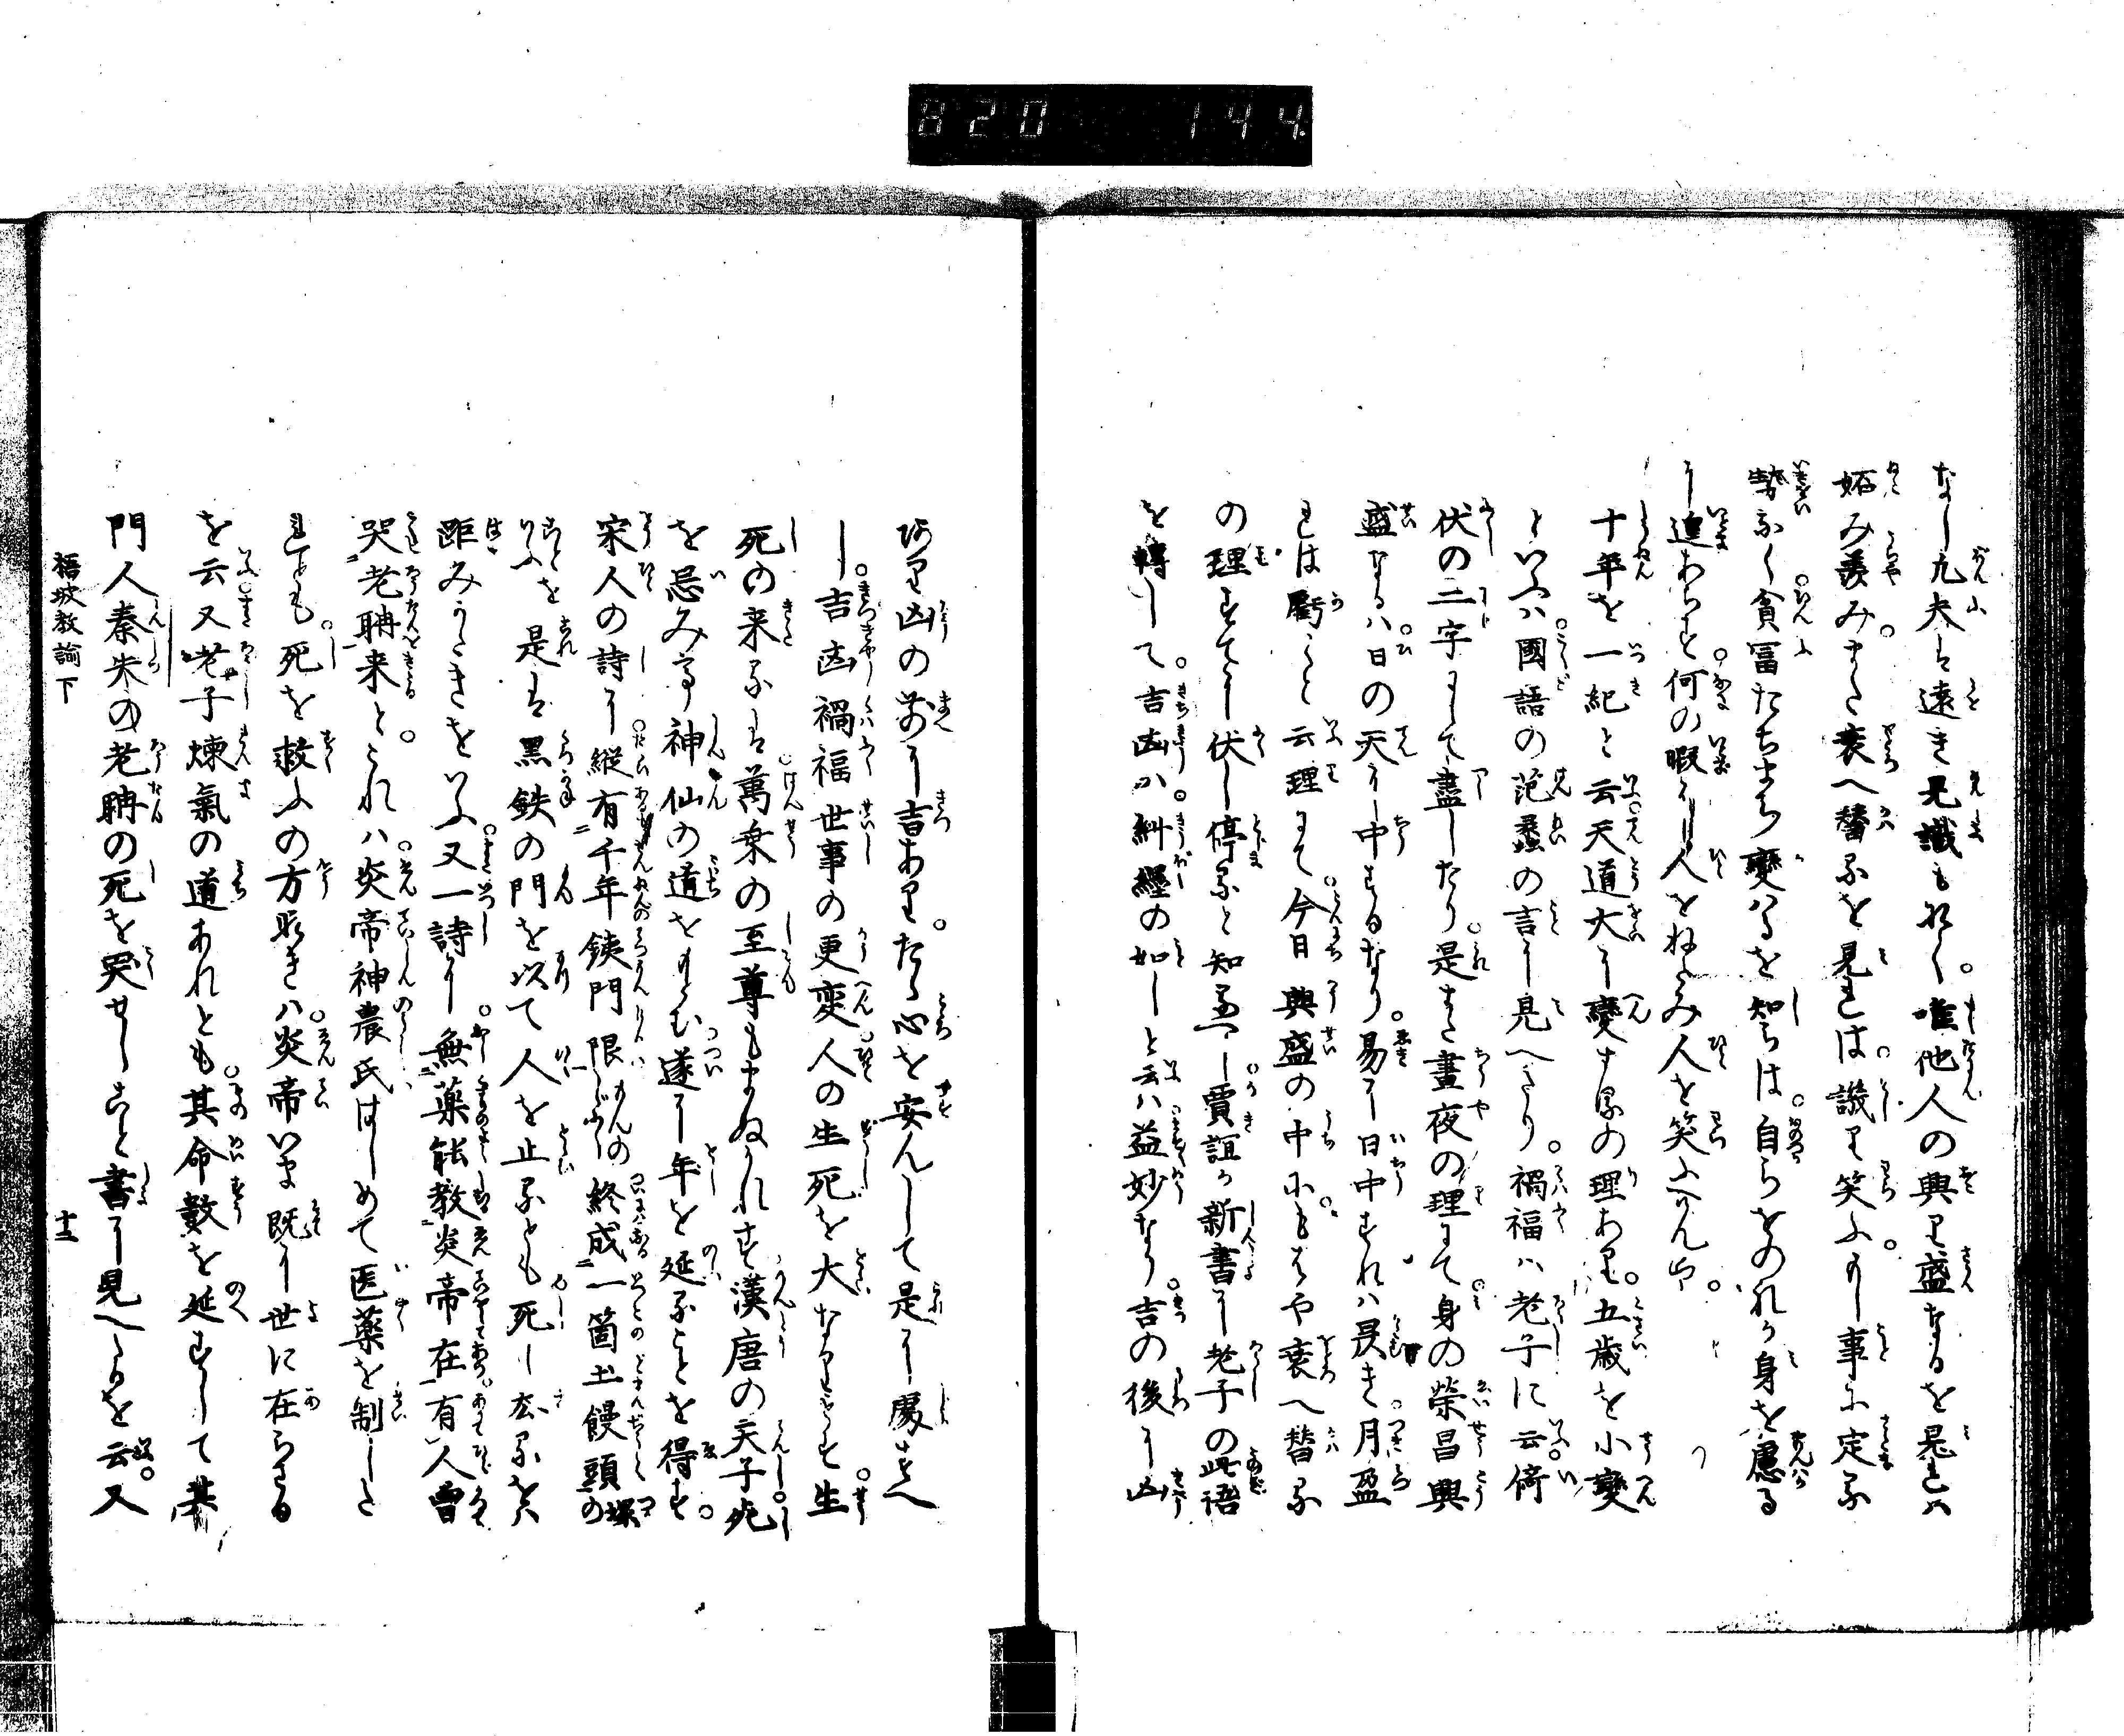 820 144
なし凡夫は遠き見識もなく。唯他人の興り盛なるを見ては
妬み羨み。また衰へ替るを見ては。譏り笑ふのし事に定る
勢なく貧冨たちまち變はるを知らは。自らをのれか身を慮る
に遑あらす何の暇にし人をねたみ人を笑ふへけんや。
十年を一紀と云天道大に變する の理あり。五歳を小變
といふハ國語の范蠡の言に見へたり。禍福ハ老子に云倚
伏の二字にて盡したり。是また晝夜の理にて身の榮昌興
盛なるハ日の天に中するなり。易に日中すれハ昃き月盈
れは虧くと云理にて今日興盛の中にもはや衰へ替る
の理すてに伏し停ると知るへし賈誼か新書に老子の此語
を轉して。吉凶か糾纆の如しと云ハ益妙なり。吉の後に凶
あり凶の前に吉あり。たゝ心を安んして是に處すへ
し。吉凶禍福世事の更変人の生死を大なりとす生
死の来るは萬乗の至尊もまぬかれす漢唐の天子死
を忌み 神仙の道をもとむ遂に年を延ることを得す。
宋人の詩に縦有千年鉄門限終成一箇土饅頭の
 を是は黒鉄の門を以て人を止るとも死し去るをハ
距みかたきをいふ又一詩に無薬能教炎帝在有人曽
哭老聃来と。これハ炎帝神農氏はしめて医薬を制した
れとも死を救ふの方なきハ炎帝いま既に世に在らさる
を云又老子煉氣の道あれとも其命數を延すして其
門人秦失の老聃の死を哭せしこと書に見へたるを云。又
梧坡教諭下
十三